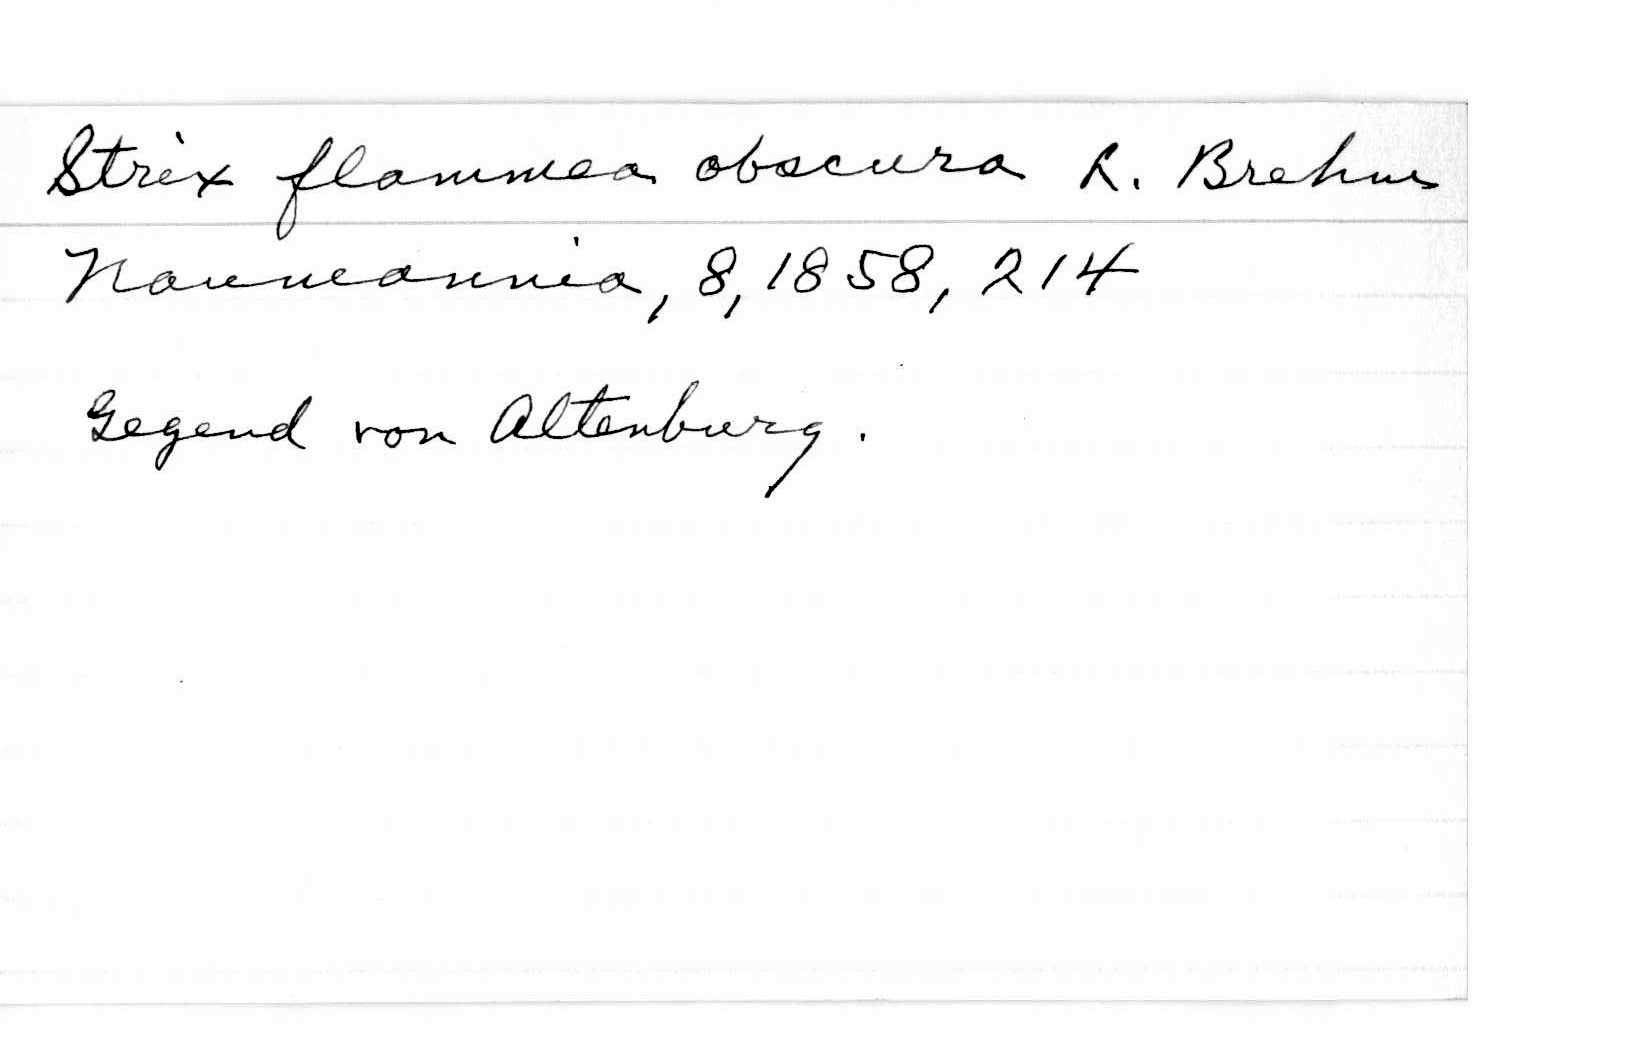 Strix flammea obscura R. Brehm
Naumannia, 8, 1858, 214
Gegend von Altenburg.